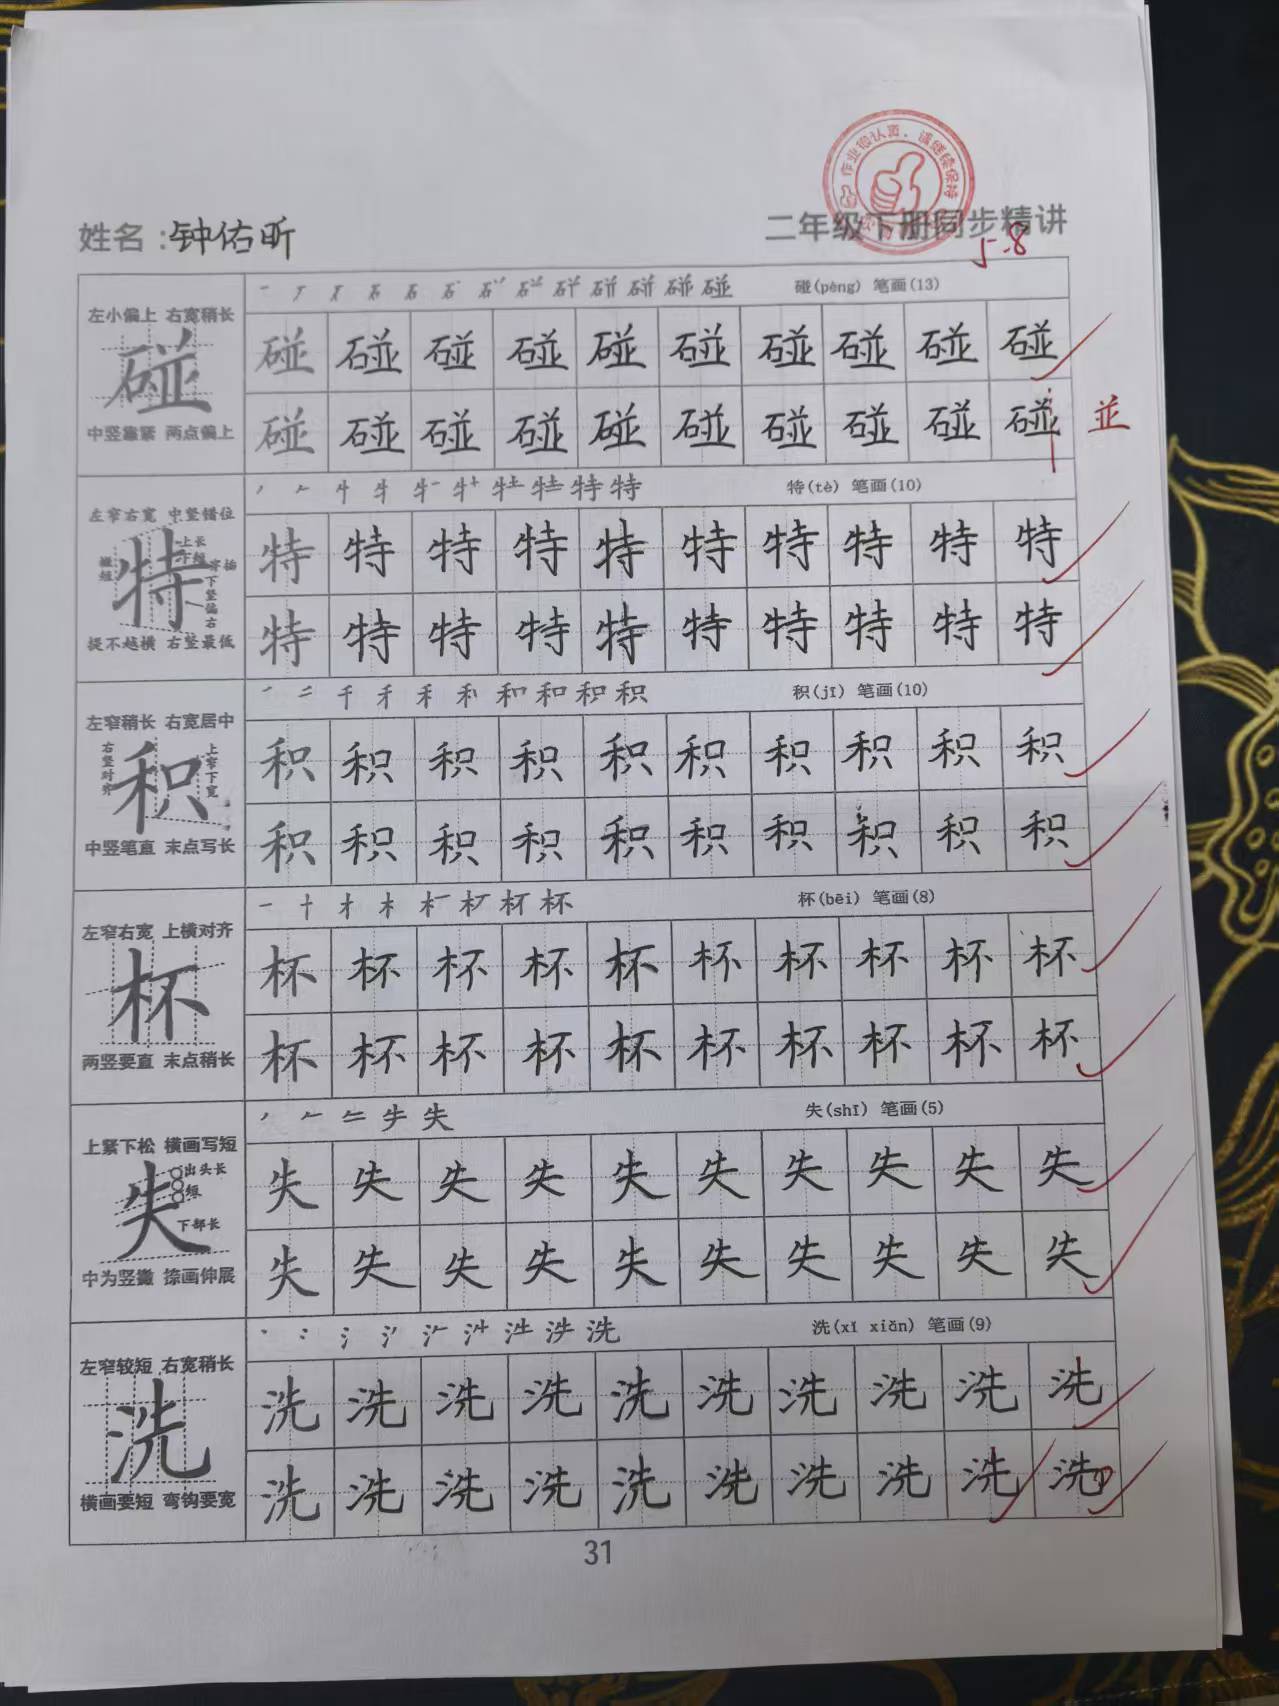 作业很认真，请继续保持
姓名：钟佑昕 二年级下册同步精讲
5.8
碰(pèng) 笔画(13)
左小偏上 右宽稍长
碰
中竖靠紧 两点偏上
碰 碰 碰 碰 碰 碰 碰 碰 碰 碰
碰 碰 碰 碰 碰 碰 碰 碰 碰 碰
並
特(tè) 笔画(10)
左窄右宽 中竖错位
特
上长
下竖偏右
提不越横 右竖最低
特 特 特 特 特 特 特 特 特 特
特 特 特 特 特 特 特 特 特 特
积(jī) 笔画(10)
左窄稍长 右宽居中
右竖对齐
积
上窄下宽
中竖笔直 末点写长
积 积 积 积 积 积 积 积 积 积
积 积 积 积 积 积 积 积 积 积
一 十 才 木 杯
杯(bēi) 笔画(8)
左窄右宽 上横对齐
杯
两竖要直 末点稍长
杯 杯 杯 杯 杯 杯 杯 杯 杯 杯
杯 杯 杯 杯 杯 杯 杯 杯 杯 杯
失(shī) 笔画(5)
上紧下松 横画写短
失
出头长
短
下部长
中为竖撇 捺画伸展
失 失 失 失 失 失 失 失 失 失
失 失 失 失 失 失 失 失 失 失
洗(xǐ xiǎn) 笔画(9)
左窄较短 右宽稍长
洗
横画要短 弯钩要宽
洗 洗 洗 洗 洗 洗 洗 洗 洗 洗
洗 洗 洗 洗 洗 洗 洗 洗 洗 洗
31